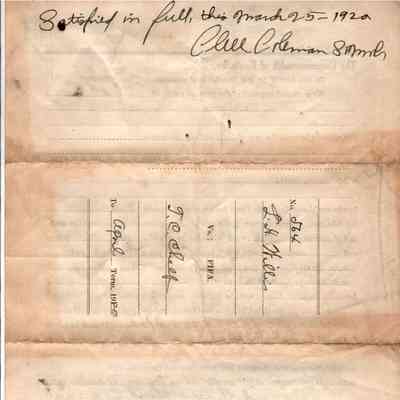 Satisfied in full, this March 25 - 1920
Clell Coleman
No. 564
L. H. Willis
Vs: FIFA.
T. C.
To April Term, 19